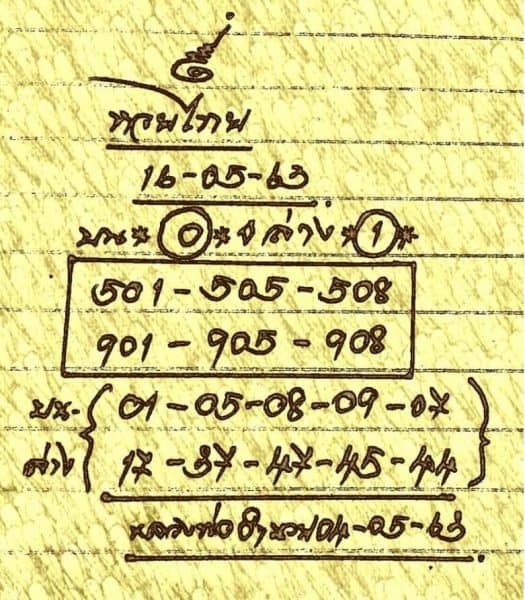 หวยไทย
16-05-63
บน * 0 * ล่าง * 1 *
501 - 505 - 508
901 - 905 - 908
บน- 01 - 05 - 08 - 09 - 07
ล่าง 17 - 37 - 47 - 45 - 44
04-05-63